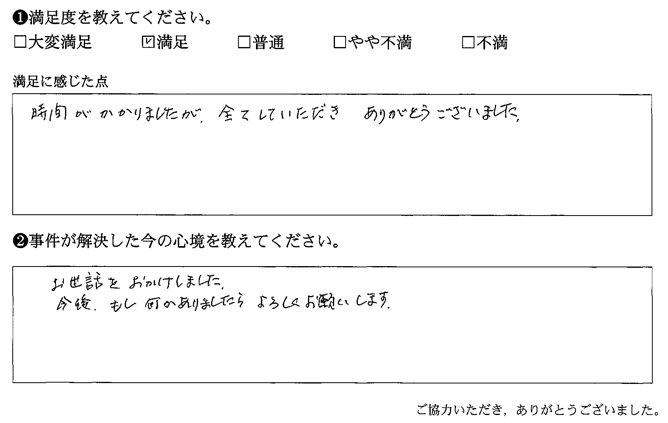 ❶満足度を教えてください。
□大変満足 ☑満足 □普通 □やや不満 □不満
満足に感じた点
時間がかかりましたが、全てしていただき ありがとうございました。
❷事件が解決した今の心境を教えてください。
お世話をおかけしました。
今後、もし何かありましたらよろしくお願いします。
ご協力いただき，ありがとうございました。